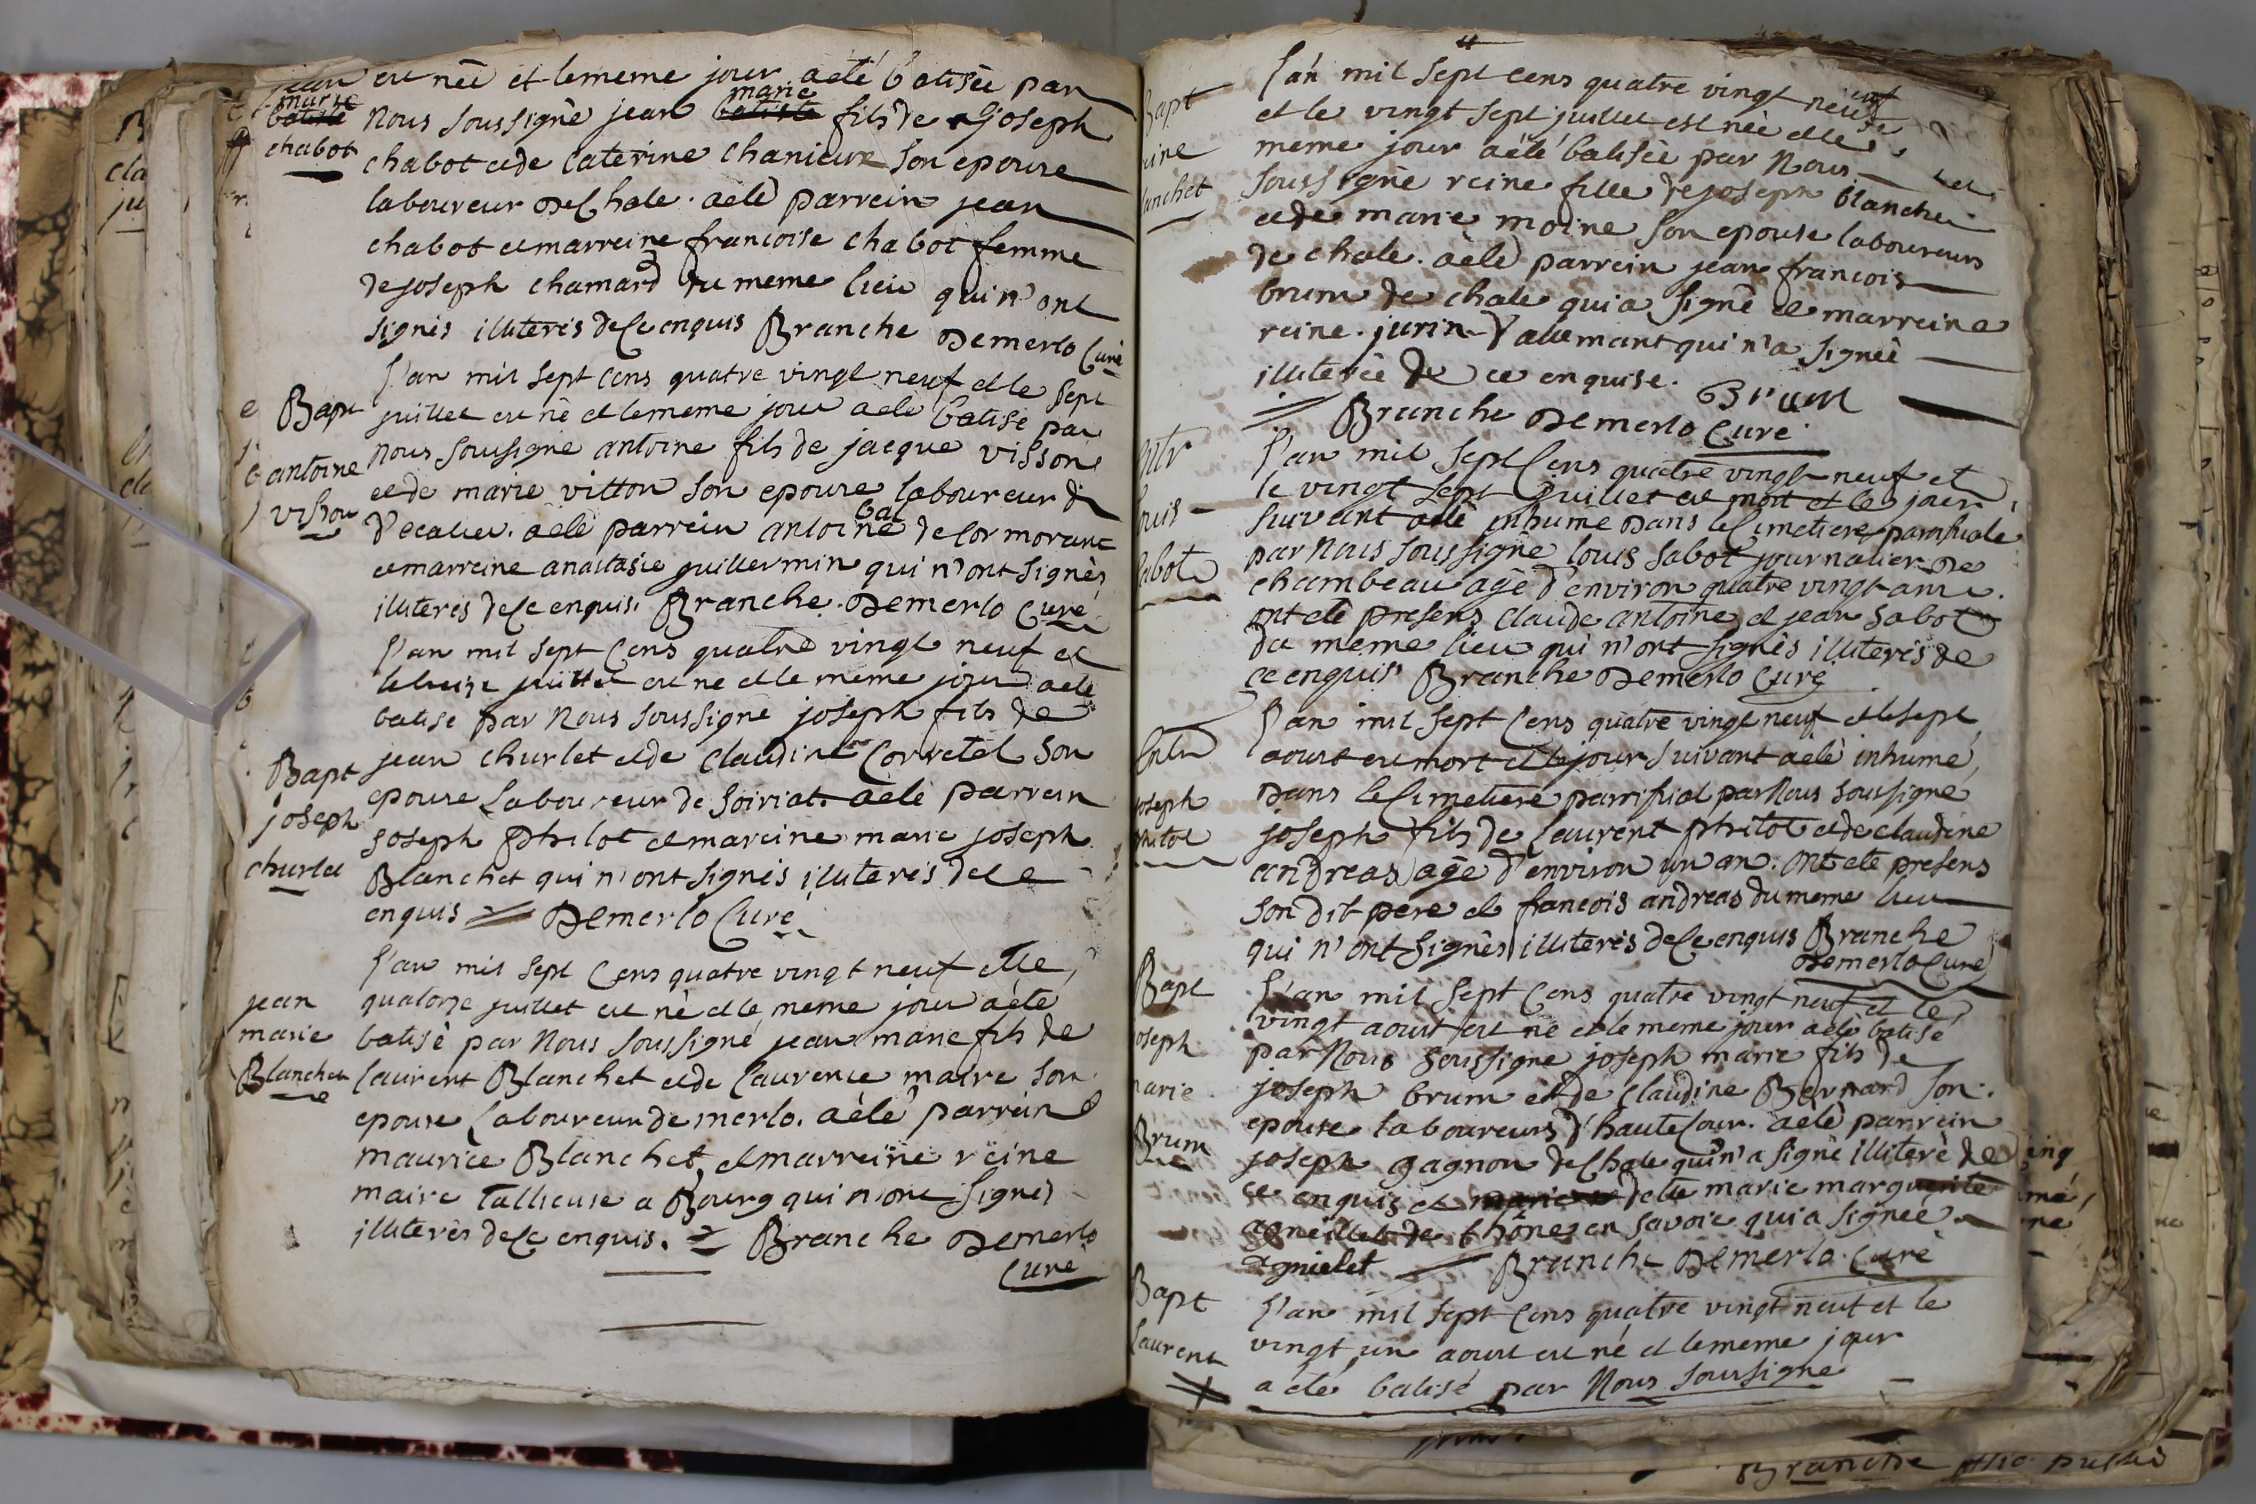 jean
marie
batiste
chabot
est née et le meme jour a été batisée par
nous soussigné jean batiste marie fils de joseph
chabot et de caterine chanieux son epouse
laboureur de Chale. a été parrein jean
chabot et marreine francoise chabot femme
de joseph chamard du meme lieu qui n'ont
signés illiterés de Ce enquis Branche Demerlo Curé
Bapt
antoine
visson
l'an mil sept Cens quatre vingt neuf et le sept
juillet est né et le meme jour a été batisé par
nous soussigné antoine fils de jacque visson
et de marie vitton son epouse laboureur
a été parrein antoine de Cormorant
et marreine anastasie guillermin qui n'ont signés
illiterés de Ce enquis. Branche. Demerlo Curé
Bapt
joseph
churlet
l'an mil sept Cens quatre vingt neuf et
le treize juillet est né et le meme jour a été
batisé par nous soussigné joseph fils de
jean churlet et de Claudine Corretel son
epouse Laboureur de Soiriat. a été parrein
joseph philot et mareine marie joseph
Blanchet qui n'ont signés illiterés de Ce
enquis Demerlo Curé
jean
marie
Blanchet
l'an mil sept Cens quatre vingt neuf et le
quatorze juillet est né et le meme jour a été
batisé par nous soussigné jean marie fils de
laurent Blanchet et de laurence maire son
epouse Laboureur de merlo. a été parrein
maurice Blanchet, et marreine reine
maire tallieuse a Bourg qui n'ont signés
illiterés de Ce enquis. Branche Demerlo
Curé
Bapt
reine
blanchet
l'an mil sept Cens quatre vingt neuf
et le vingt sept juillet est née et le
meme jour a été batisée par nous
soussigné reine fille de joseph blanchet
et de marie moine son epouse laboureurs
de chale. a été parrein jean francois
brum de chale qui a signé et marreine
reine. jurin qui n'a signée
illiterée de ce enquise. Brum
Branche Demerlo Curé
louis
sabot
l'an mil sept Cens quatre vingt neuf et
le vingt sept juillet est mort et le jour
suivant a été inhumé dans le Cimetiere
par nous soussigné louis sabot journalier de
chambeau agé d'environ quatre vingt ans.
ont été presens Claude antoine et jean sabot
du meme lieu qui n'ont signés illiterés de
ce enquis Branche Demerlo Curé
joseph
philot
l'an mil sept Cens quatre vingt neuf et le sept
aoust est mort et le jour suivant a été inhumé
dans le Cimetiere par nous soussigné
joseph fils de laurent philot et de claudine
andreas agé d'environ un an. ont été presens
son dit pere et francois andreas du meme lieu
qui n'ont signés illiterés de Ce enquis Branche
Demerlo Curé
Bapt
joseph
marie
Brum
l'an mil sept Cens quatre vingt neuf et le
vingt aoust est né et le meme jour a été batisé
par nous soussigné joseph marie fils de
joseph brum et de Claudine Bernard son
epouse laboureurs d'hauteCour. a été parrein
joseph gagnon de Chale qui n'a signé illiteré de
ce enquis et marie marguerite
agneillet de thônes en savoie qui a signée
agnielet Branche Demerlo Curé
Bapt
laurent
l'an mil sept Cens quatre vingt neuf et le
vingt un aoust est né et le meme jour
a été batisé par nous soussigné
Branche